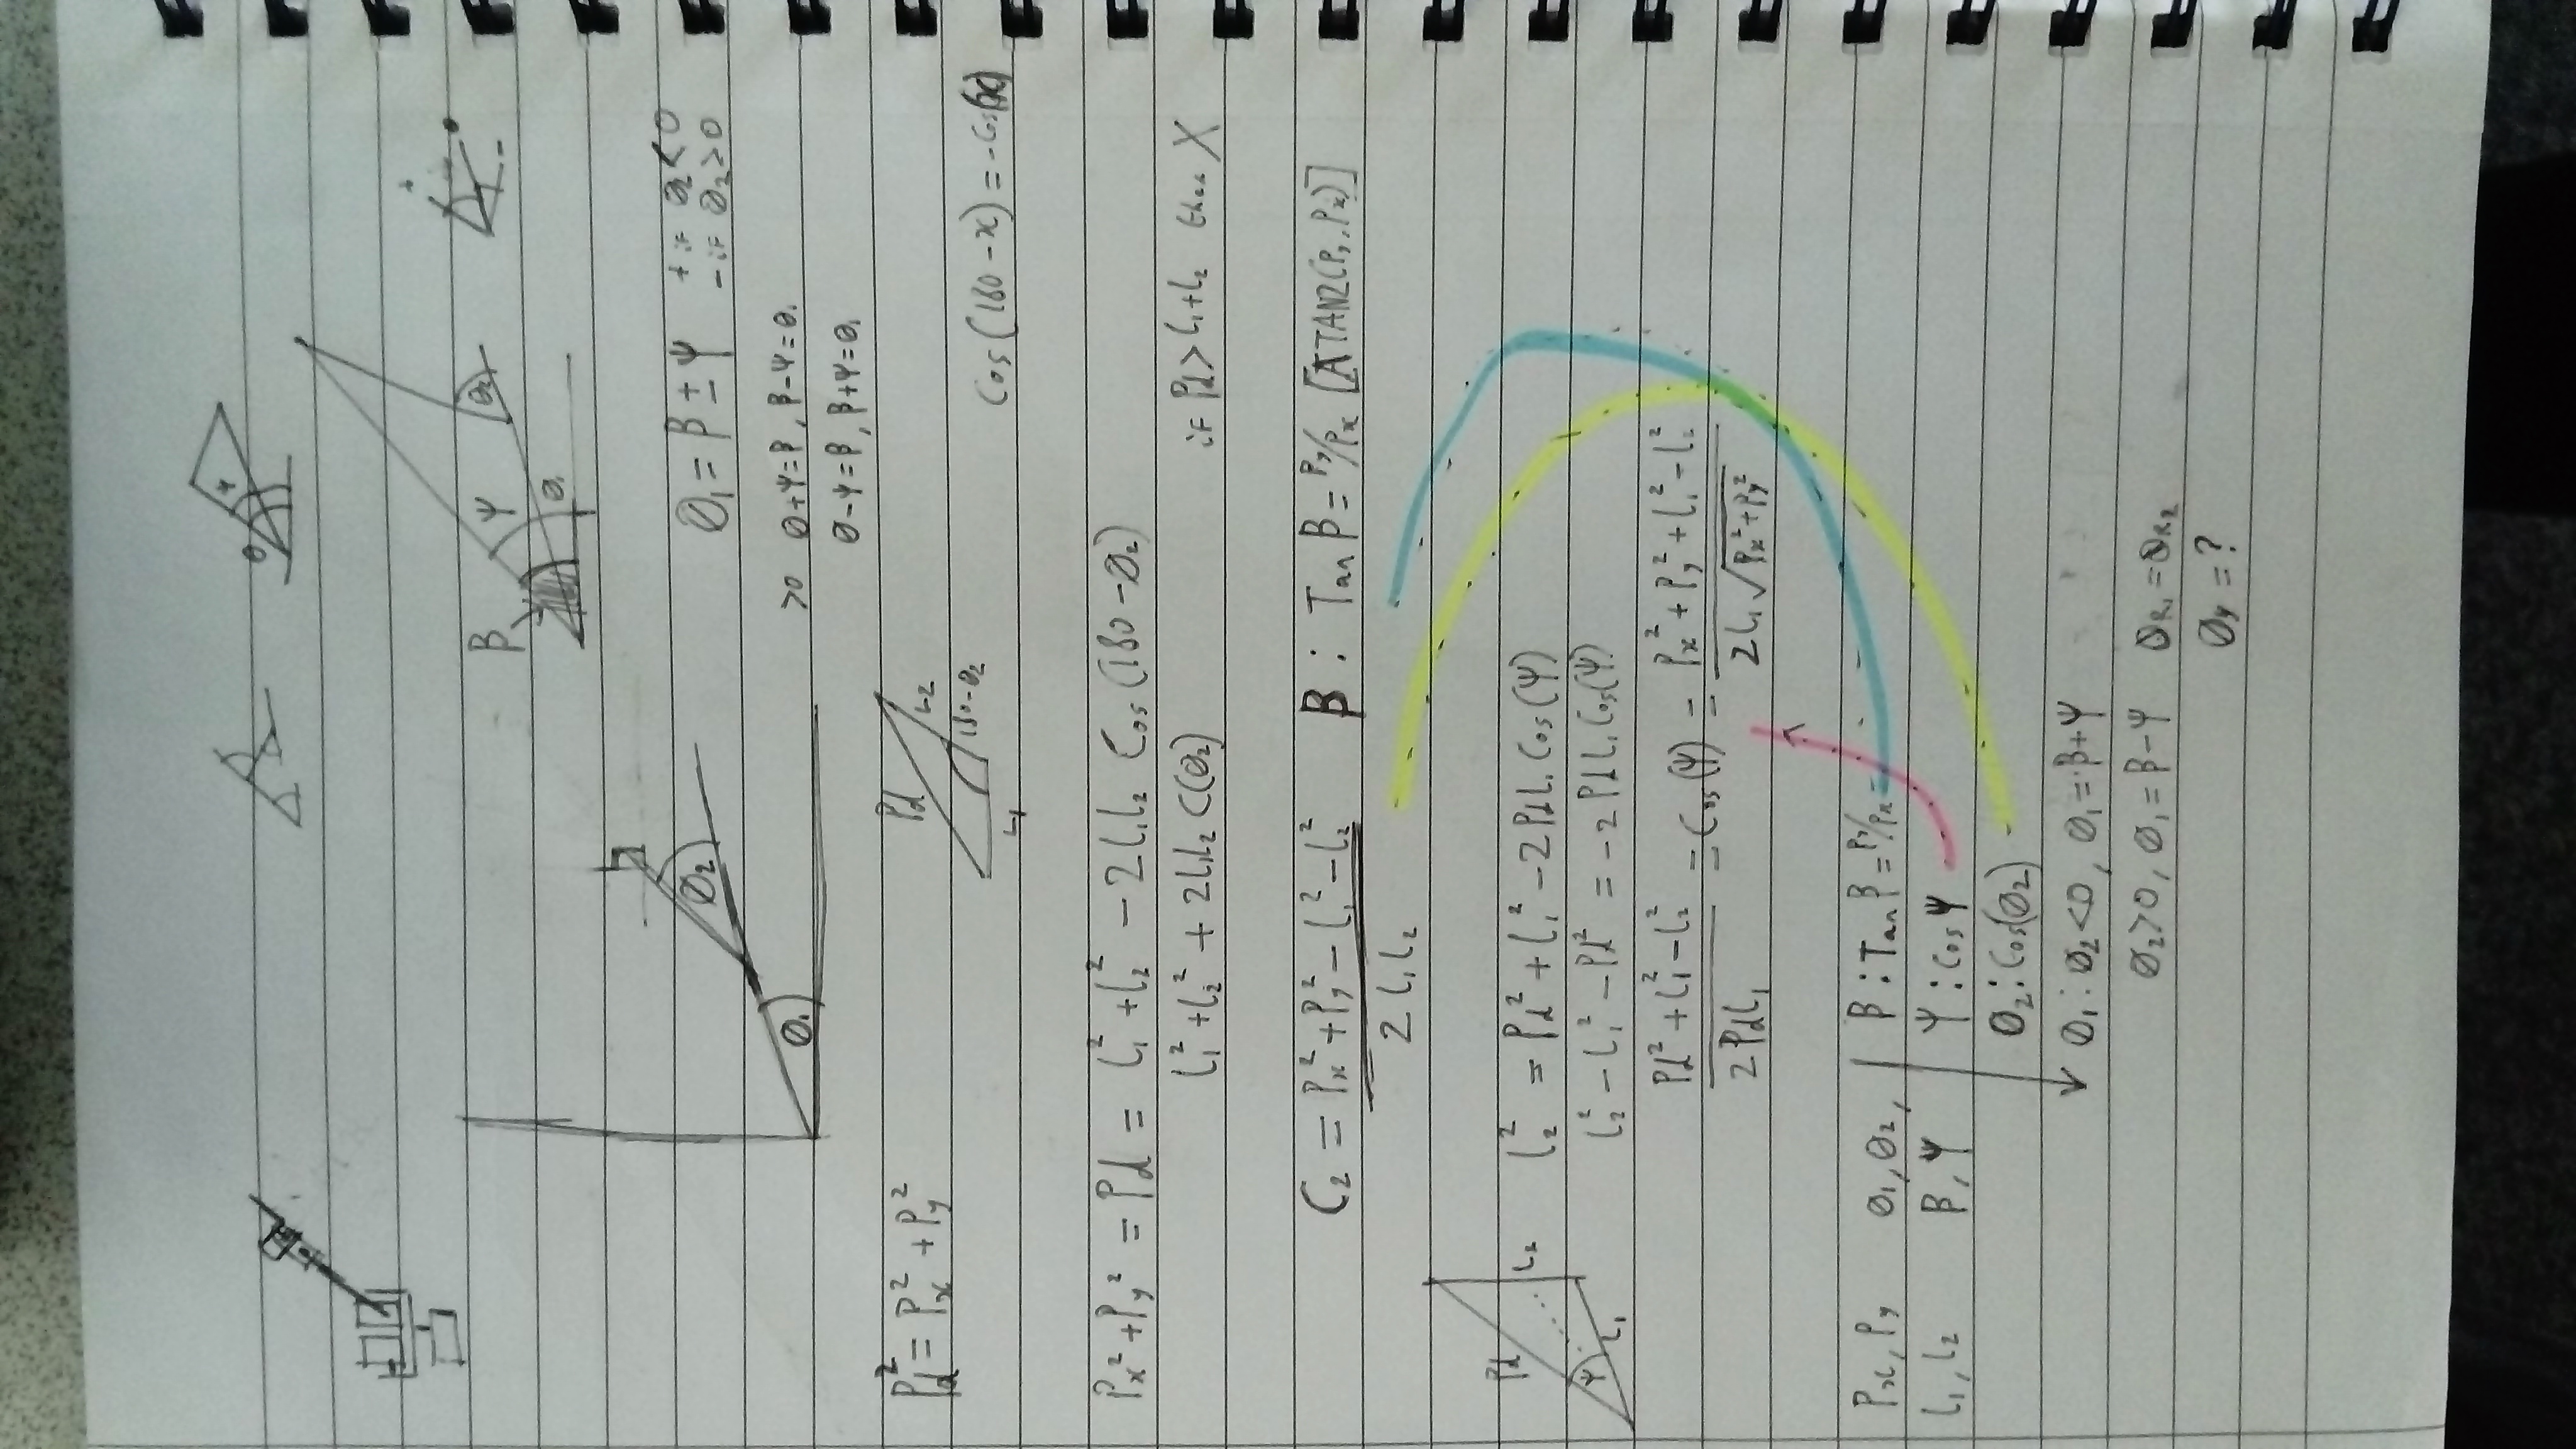 θ +
β ψ θ₂ θ₁
+ 0 −
θ₂
θ₁
θ₁ = β ± ψ + if θ₂ < 0
− if θ₂ > 0
>0 θ+ψ=β, β−ψ=θ₁
θ−ψ=β, β+ψ=θ₁
Pd² = Px² + Py²
Pd L2 180-θ₂ L1
Cos(180−x) = −Cos(x)
Px² + Py² = Pd = l₁² + l₂² − 2l₁l₂ Cos(180−θ₂)
l₁² + l₂² + 2l₁l₂ C(θ₂) if Pd > l₁+l₂ then X
C₂ = Px² + Py² − l₁² − l₂² / 2 l₁ l₂ β : Tan β = Py/Px [ATAN2(Py, Px)]
Pd L2 ψ L1
l₂² = Pd² + l₁² − 2Pdl₁ Cos(ψ)
l₂² − l₁² − Pd² = −2Pdl₁ Cos(ψ)
Pd² + l₁² − l₂² / 2Pdl₁ = Cos(ψ) = Px² + Py² + l₁² − l₂² / 2l₁√Px²+Py²
Px, Py θ₁, θ₂, β : Tan β = Py/Px
l₁, l₂ β, ψ ψ : cos ψ
θ₂ : Cos(θ₂)
θ₁ : θ₂<0, θ₁ = β+ψ
θ₂>0, θ₁ = β−ψ θR₁ = θR₂
θy = ?